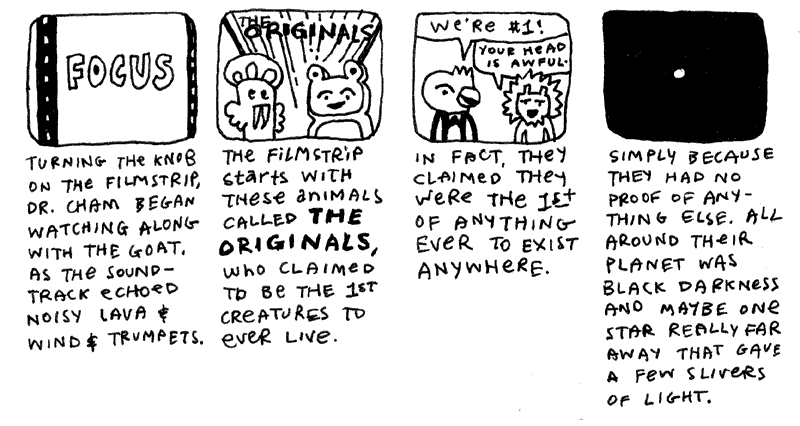 FOCUS
TURNING THE KNOB
ON THE FILMSTRIP,
DR. CHAM BEGAN
WATCHING ALONG
WITH THE GOAT.
AS THE SOUND-
TRACK ECHOED
NOISY LAVA &
WIND & TRUMPETS.
THE
ORIGINALS
THE FILMSTRIP
STARTS WITH
THESE ANIMALS
CALLED THE
ORIGINALS,
WHO CLAIMED
TO BE THE 1ST
CREATURES TO
EVER LIVE.
WE'RE #1!
YOUR HEAD
IS AWFUL.
IN FACT, THEY
CLAIMED THEY
WERE THE 1ST
OF ANYTHING
EVER TO EXIST
ANYWHERE.
SIMPLY BECAUSE
THEY HAD NO
PROOF OF ANY-
THING ELSE. ALL
AROUND THEIR
PLANET WAS
BLACK DARKNESS
AND MAYBE ONE
STAR REALLY FAR
AWAY THAT GAVE
A FEW SLIVERS
OF LIGHT.